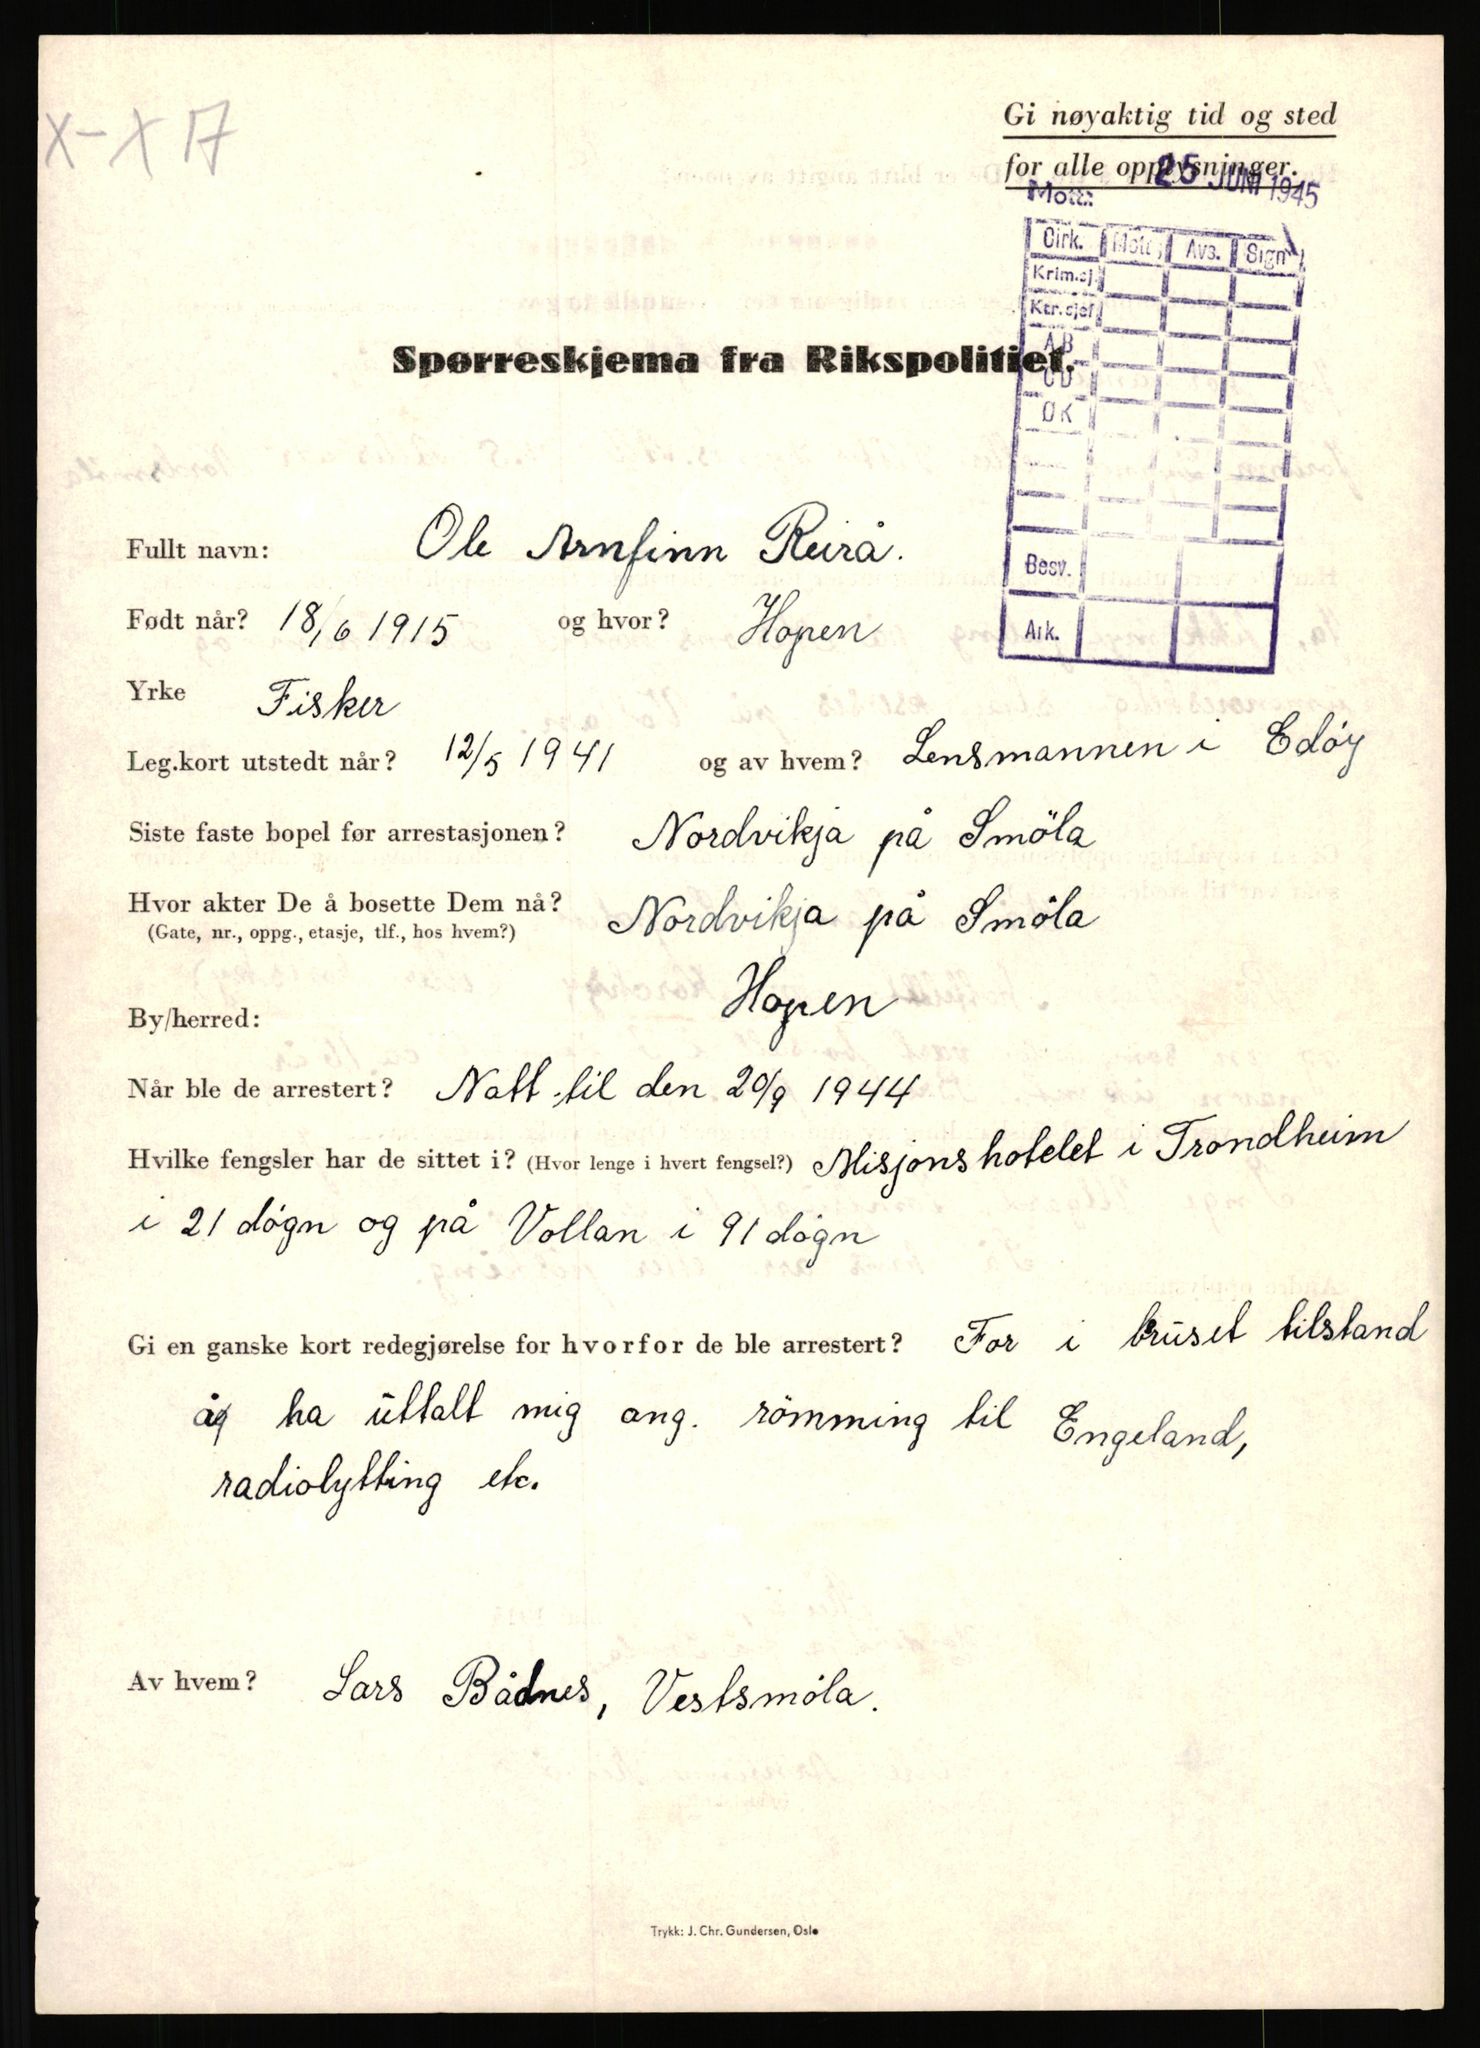 X-X 17
Gi nøyaktig tid og sted
for alle opplysninger.
25 JUNI 1945
Mott:
Dirk. Mott. Avs. Sign
Krim.sj.
Ktr.sjef
AB
CD
ØK
Besv.
Ark.
Spørreskjema fra Rikspolitiet.
Fullt navn: Ole Arnfinn Reirå.
Født når? 18/6 1915 og hvor? Hopen
Yrke Fisker
Leg.kort utstedt når? 12/5 1941 og av hvem? Lensmannen i Edøy
Siste faste bopel før arrestasjonen? Nordvikja på Smöla
Hvor akter De å bosette Dem nå? Nordvikja på Smöla
(Gate, nr., oppg., etasje, tlf., hos hvem?)
By/herred: Hopen
Når ble de arrestert? Natt til den 20/9 1944
Hvilke fengsler har de sittet i? (Hvor lenge i hvert fengsel?) Misjonshotelet i Trondheim
i 21 døgn og på Vollan i 91 døgn
Gi en ganske kort redegjørelse for hvorfor de ble arrestert? For i bruset tilstand
å ha uttalt mig ang. römming til Engeland,
radiolytting etc.
Av hvem? Lars Bådnes, Vestsmøla.
Trykk: J. Chr. Gundersen, Oslo